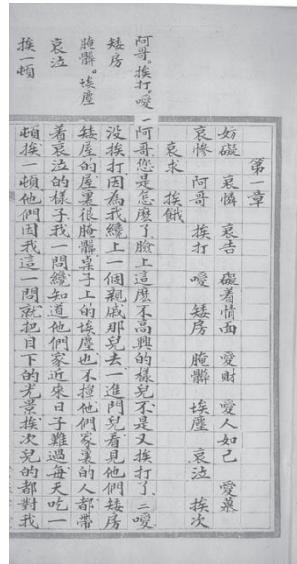 第一章
妨礙 哀憐 哀告 礙着情面 愛財 愛人如己 愛慕
哀慘 阿哥 挨打 噯 矮房 腌臢 埃塵 哀泣 挨次
哀求 挨餓
阿哥。挨打。噯
一阿哥您是怎麼了臉上這麼不高興的樣兒不是又挨打了 二噯
矮房
没挨打因為我纔上一個親戚那兒去一進門兒看見他們矮房
腌臢。埃塵
矮屋的屋裏很腌臢桌子上的埃塵也不撢他們家裏的人都帶
哀泣
着哀泣的樣子我一問纔知道他們家近來日子難過每天吃一
挨一頓
頓挨一頓他們因我這一問就把目下的光景挨次兒的都對我